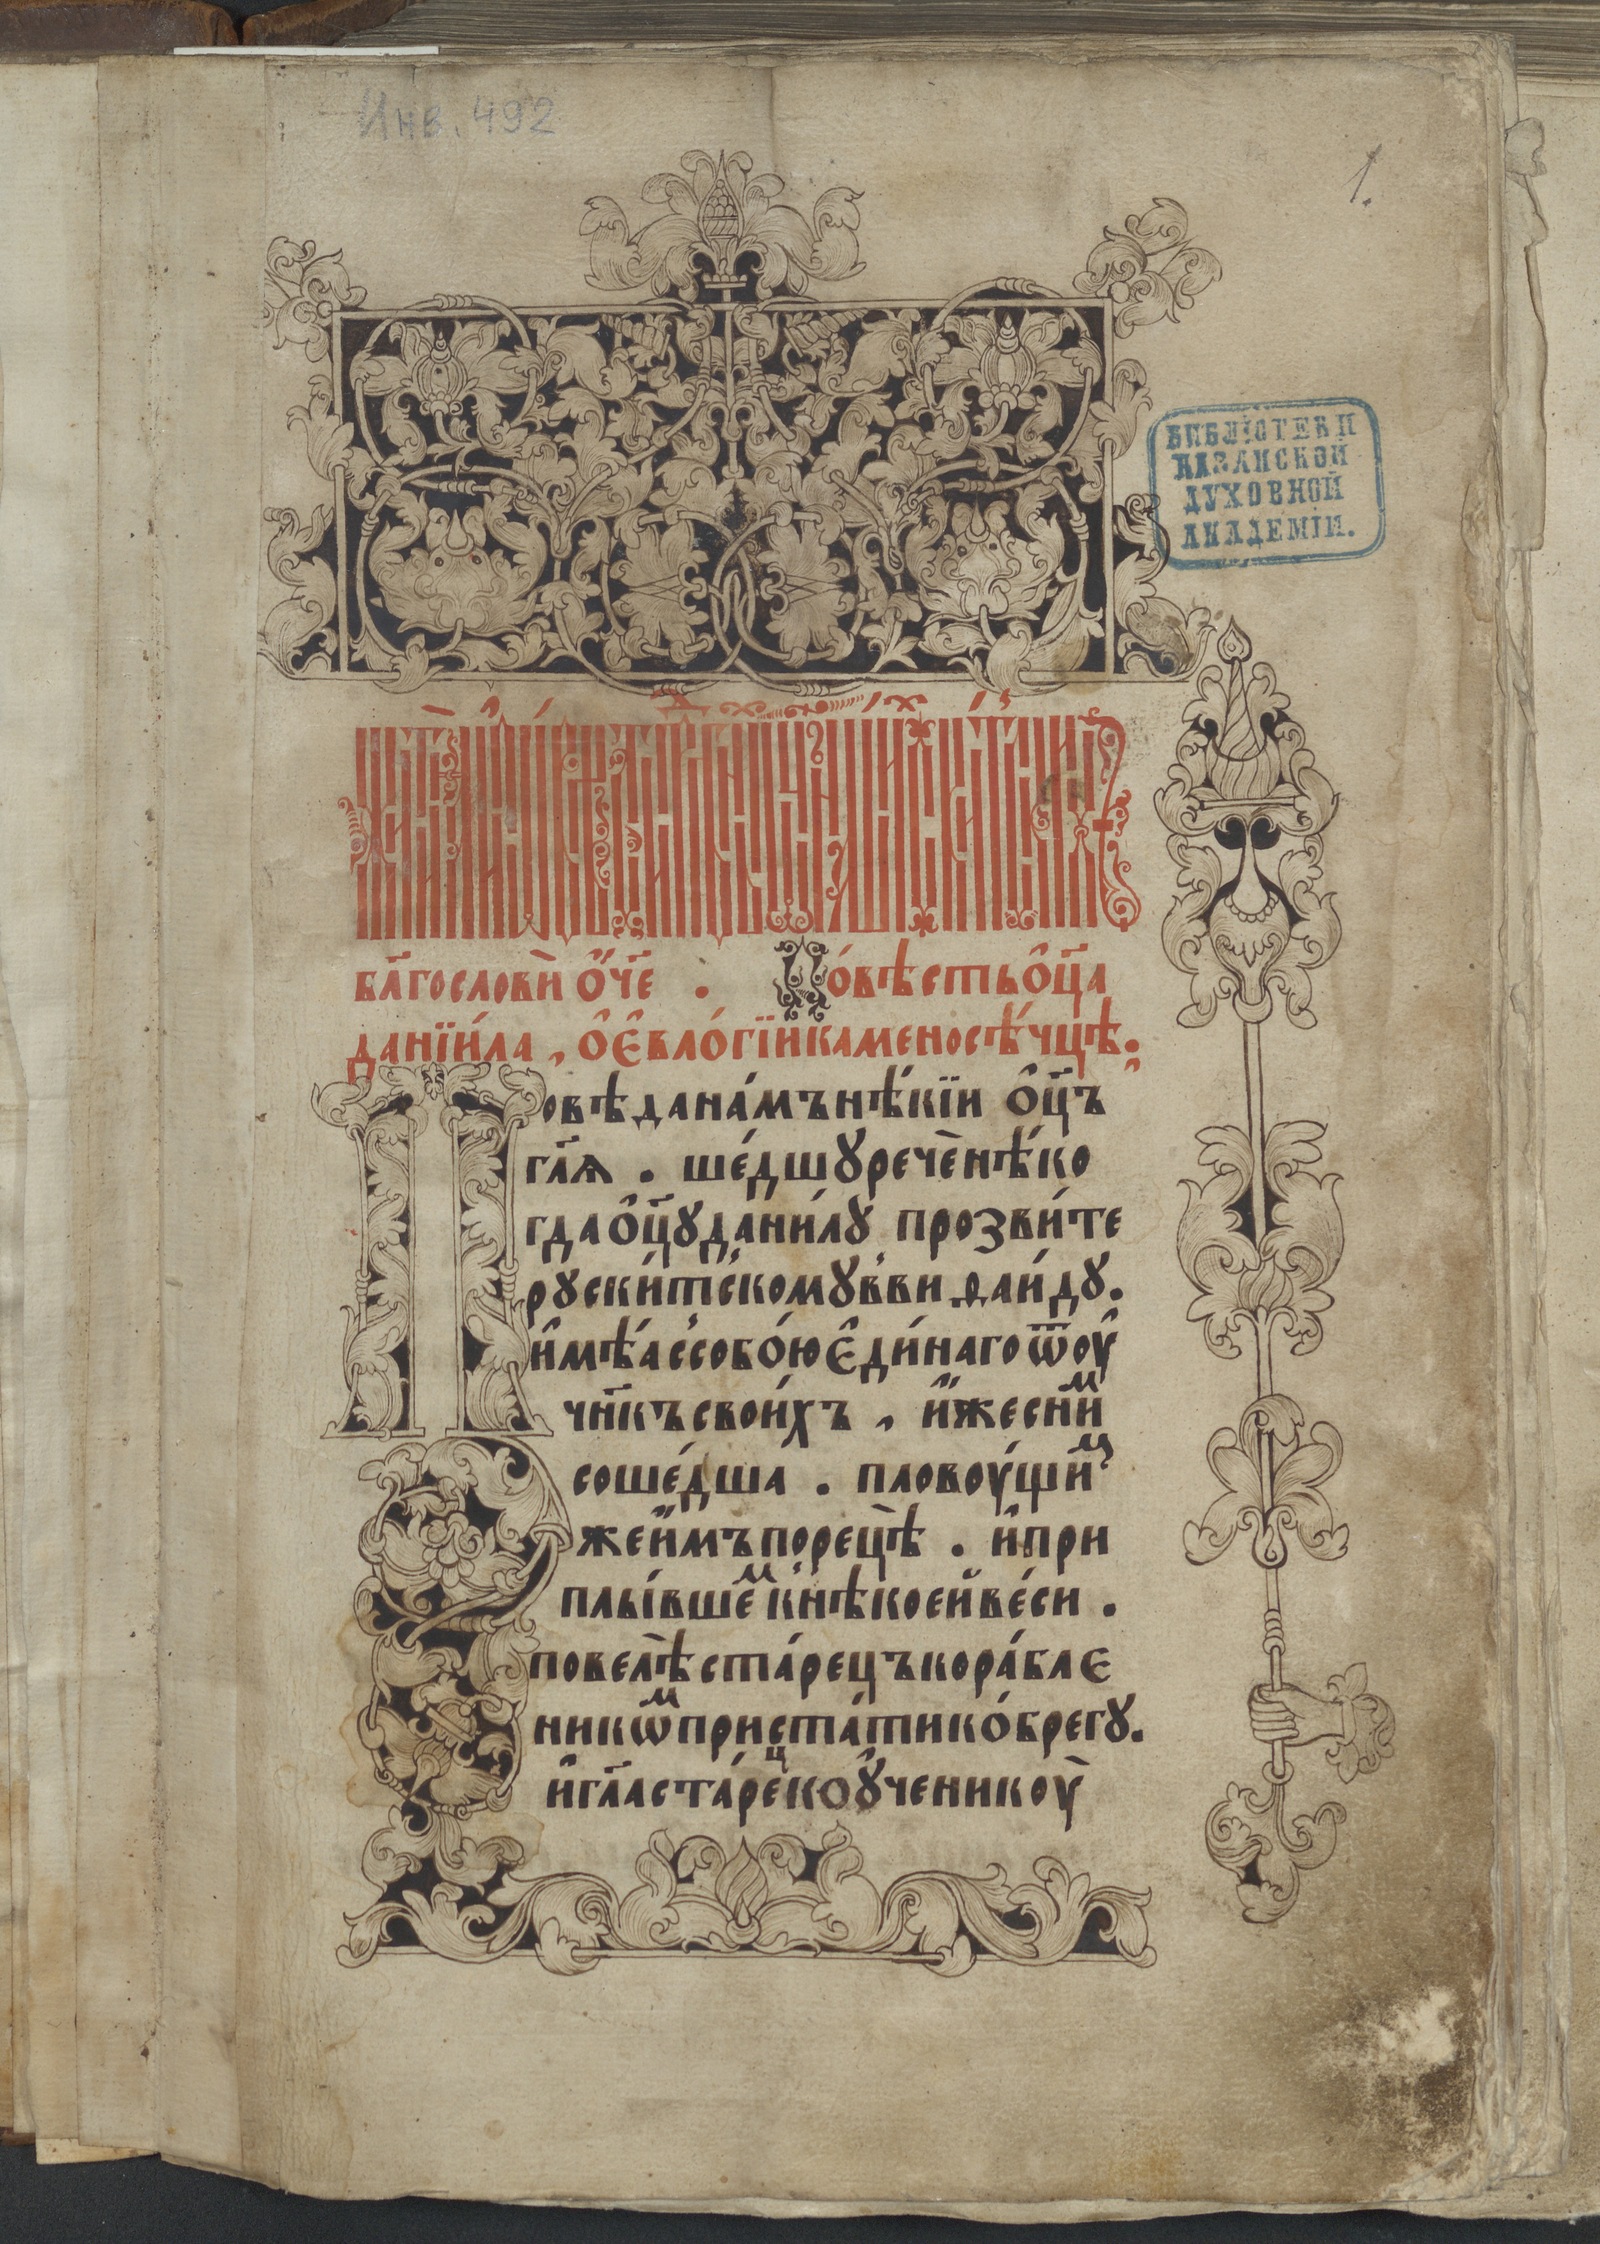 Инв. 492
1.
БИБЛІОТЕКИ
КАЗАНСКОЙ
ДУХОВНОЙ
АКАДЕМІИ.
бл҃гослови̂ ѻ҆́ч҃е . По́вѣсть ѻ҆ц҃а
данїи́ла , ѻ҆ є҆вло́гїи каменосѣ́чцѣ.
Повѣда на́мъ нѣ́кїи ѻ҆ц҃ъ
гл҃ѧ . ше́дшꙋ речѐ нѣ́ко
гда ѻ҆ц҃ꙋ дани́лꙋ прозви́те
рꙋ ски́тскомꙋ в виѳаи́дꙋ.
и҆мѣ́а с собо́ю є҆ди́наго ѿ оу҆
чн҃къ свои́хъ , и҆́же с ни́м
соше́дша . пловоу́щим
же и҆́мъ по рецѣ̀ . и҆ при
плы́вшем к нѣ́коей ве́си .
повелѣ̀ ста́рецъ корабле
никѡм приста́ти ко́ брегꙋ.
и҆ гл҃а ста́рец ко ꙋ҆ченикоу̀